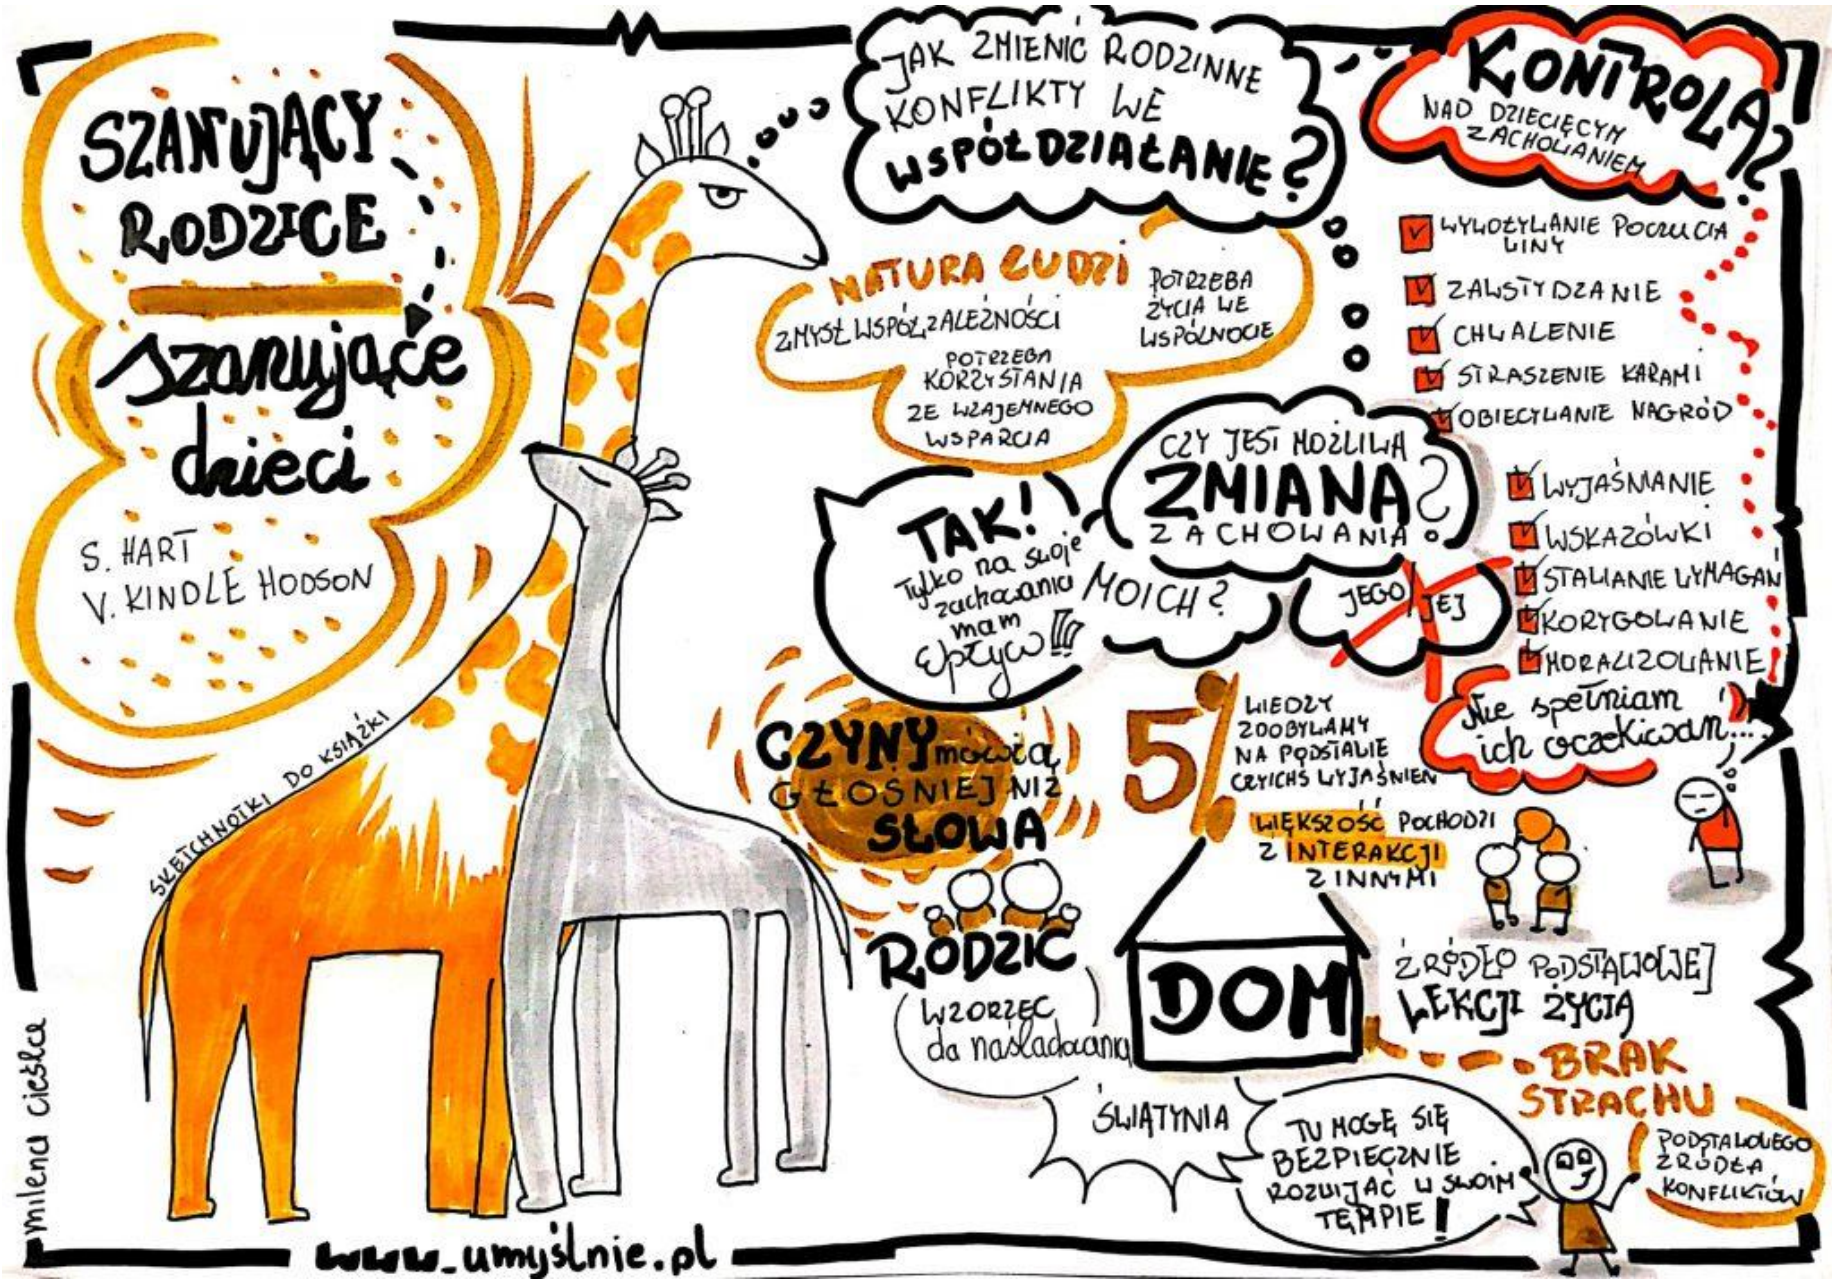 SZANUJĄCY
RODZICE
szanujące
dzieci
S. HART
V. KINDLE HODSON
SKETCHNOTKI DO KSIĄŻKI
milena cieśla
www.umyślnie.pl
JAK ZMIENIĆ RODZINNE
KONFLIKTY WE
WSPÓŁDZIAŁANIE?
NATURA LUDZI
ZMYSŁ WSPÓŁZALEŻNOŚCI
POTRZEBA
ŻYCIA WE
WSPÓLNOCIE
POTRZEBA
KORZYSTANIA
ZE WZAJEMNEGO
WSPARCIA
KONTROLA?
NAD DZIECIĘCYM
ZACHOWANIEM
WYWOŻYWANIE POCZUCIA
WINY
ZAWSTYDZANIE
CHWALENIE
STRASZENIE KARAMI
OBIECYWANIE NAGRÓD
WYJAŚNIANIE
WSKAZÓWKI
STAWIANIE WYMAGAŃ
KORYGOWANIE
MORALIZOWANIE
Nie spełniam
ich oczekiwań...
CZY JEST MOŻLIWA
ZMIANA
ZACHOWANIA?
MOICH?
JEGO/JEJ
TAK!
Tylko na swoje
zachowania
mam
wpływ!!!
CZYNY mówią
GŁOŚNIEJ NIŻ
SŁOWA
5%
WIEDZY
ZDOBYWAMY
NA PODSTAWIE
CZYICHŚ WYJAŚNIEŃ
WIĘKSZOŚĆ POCHODZI
Z INTERAKCJI
Z INNYMI
RODZIC
WZORZEC
do naśladowania
DOM
ŹRÓDŁO PODSTAWOWEJ
LEKCJI ŻYCIA
BRAK
STRACHU
PODSTAWOWEGO
ŹRÓDŁA
KONFLIKTÓW
ŚWIĄTYNIA
TU MOGĘ SIĘ
BEZPIECZNIE
ROZWIJAĆ W SWOIM
TEMPIE!